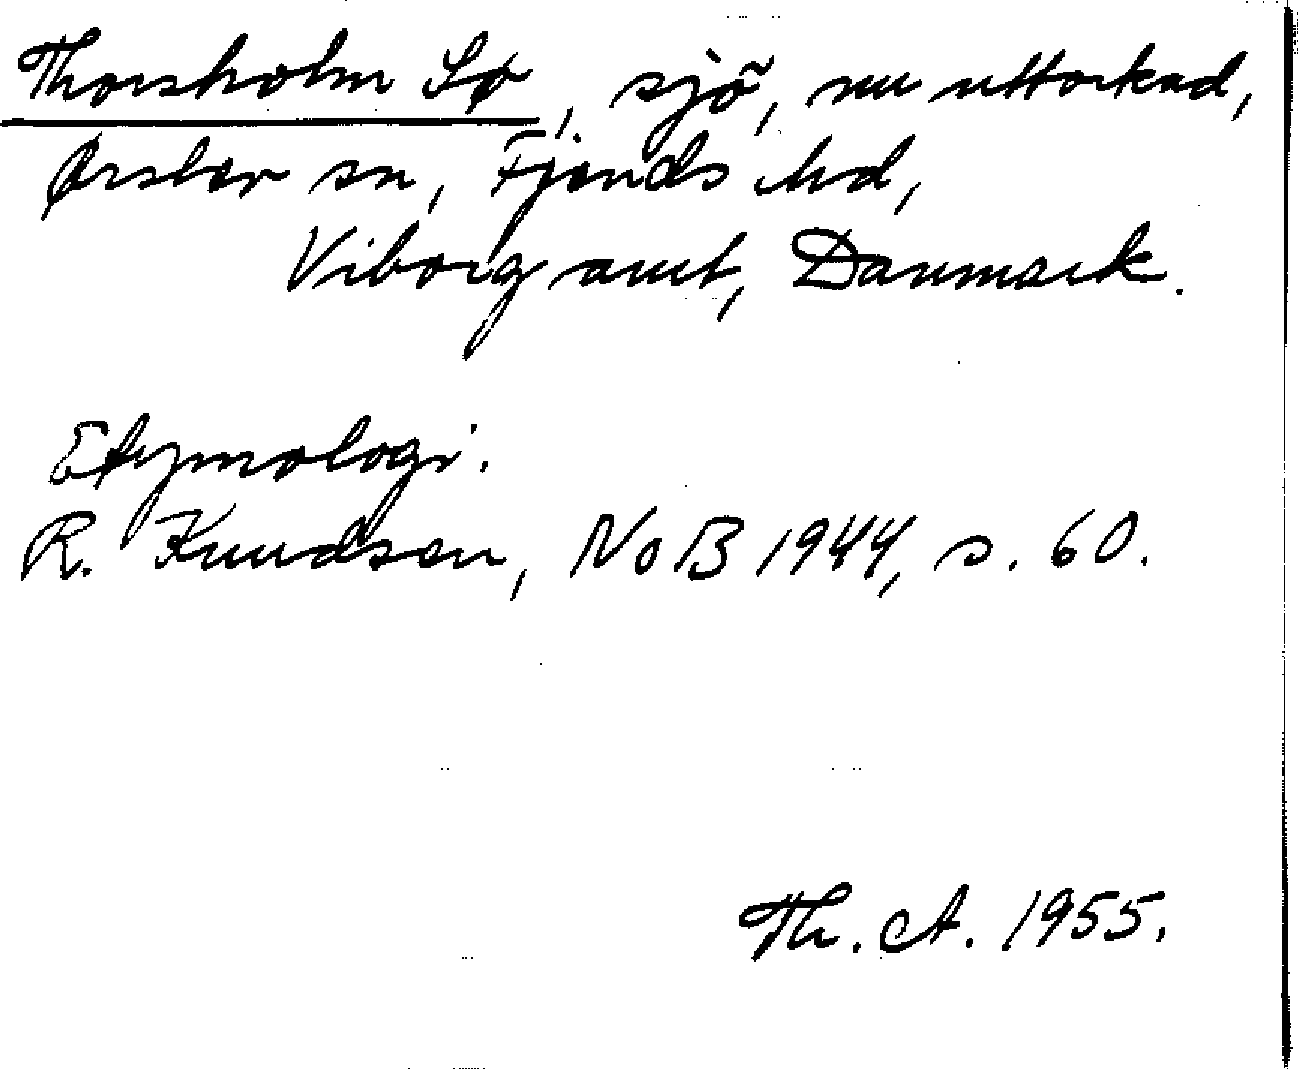 Thorsholm Sø, sjö, nu uttorkad,
Ørslev sn, Fjends hd,
Viborg amt, Danmark.
Etymologi:
R. Knudsen, NoB 1944, s. 60.
Th. A. 1955.